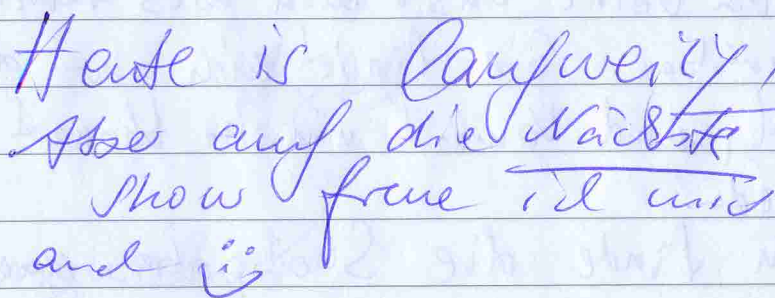 Heute is langweilig,
Aber auf die Nächste
Show freue ich mich
auch ü